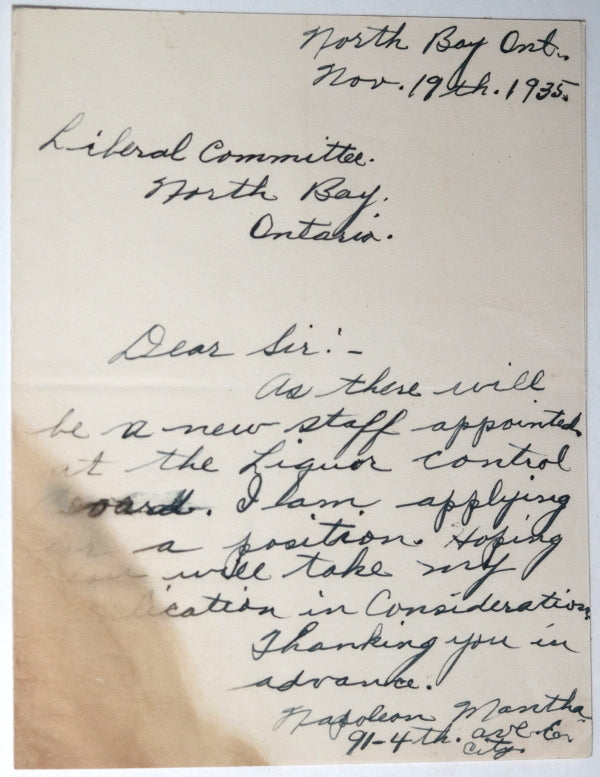 North Bay Ont.
Nov. 19th. 1935.
Liberal Committee.
North Bay.
Ontario.
Dear Sir:-
As there will
be a new staff appointed
at the Liquor control
oard. I am. applying
a position. Hoping
will take my
lication in Consideration
Thanking you in
advance.
Napoleon Mantha
91-4th. ave. E.
City.